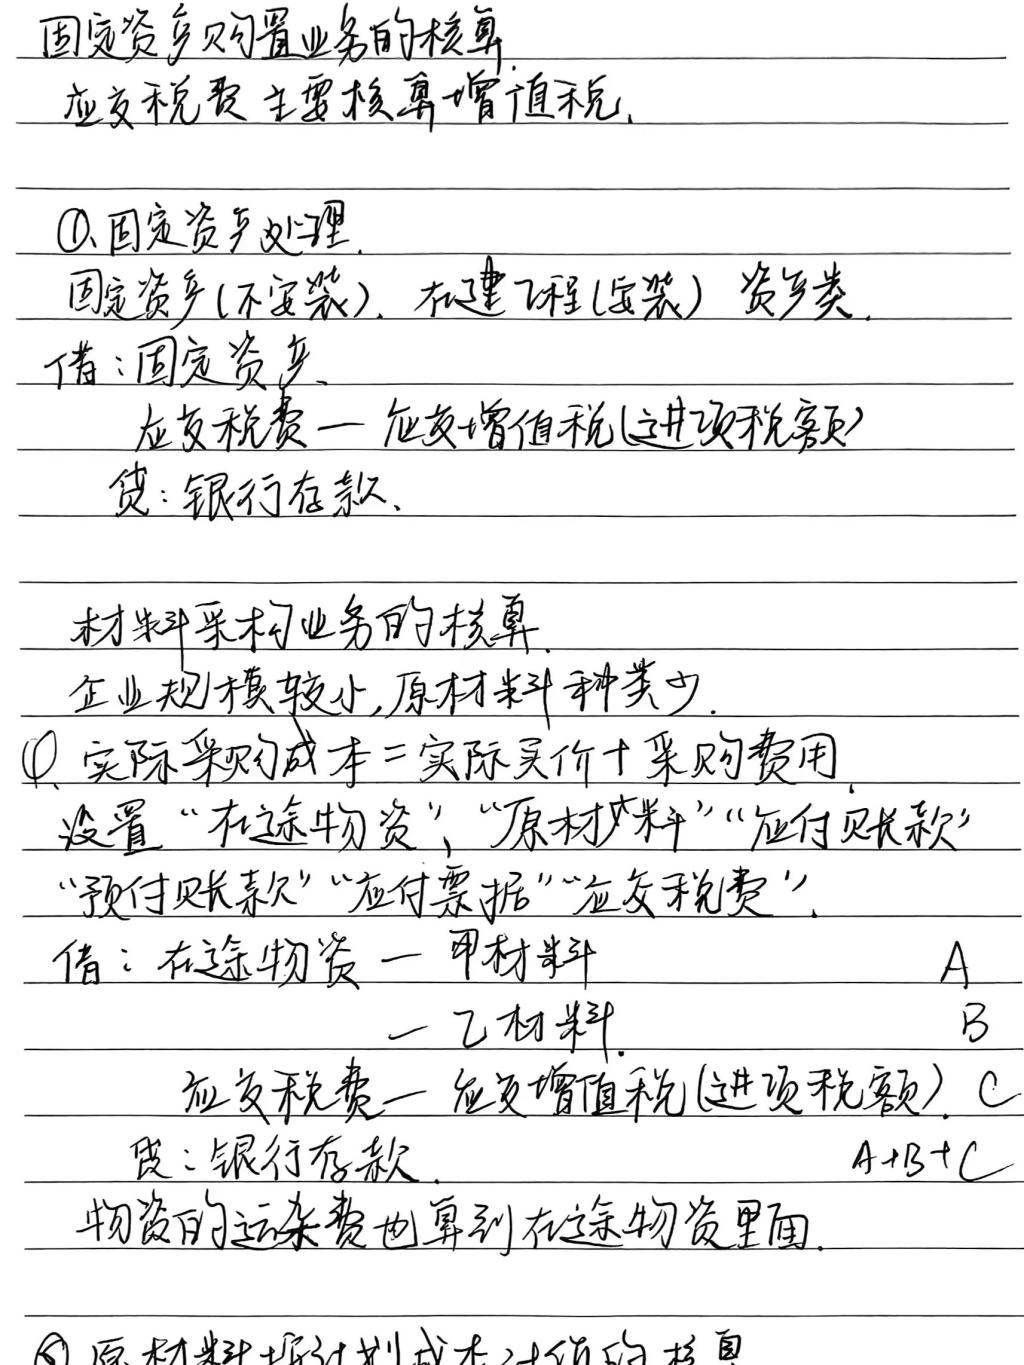 固定资产购置业务的核算.
应交税费 主要核算增值税.
①、固定资产处理.
固定资产(不安装). 在建工程(安装) 资产类.
借:固定资产.
应交税费一应交增值税(进项税额)
贷:银行存款.
材料采构业务的核算.
企业规模较小,原材料种类少.
①.实际采购成本=实际买价+采购费用.
设置“在途物资”,“原材料”“应付账款”
“预付账款”“应付票据”“应交税费”.
借:在途物资一甲材料 A
一乙材料. B
应交税费一应交增值税(进项税额). C
贷:银行存款. A+B+C
物资的运杂费也算到在途物资里面.
原材料按计划成本计价的核算